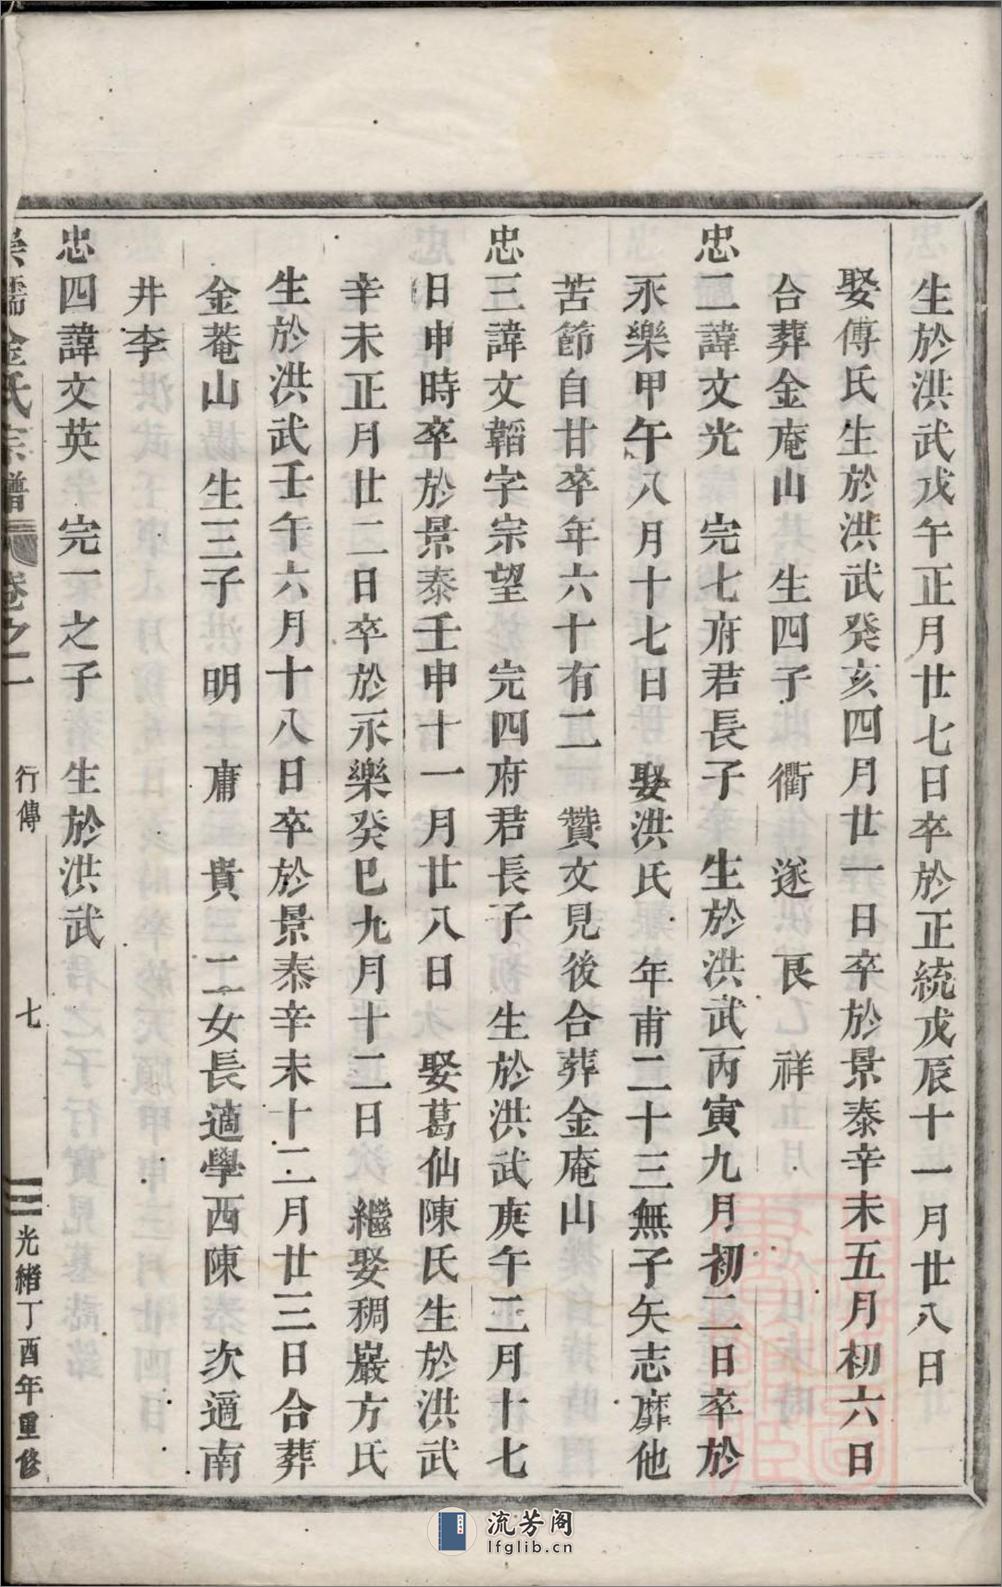 生於洪武戊午正月廿七日卒於正統戊辰十一月廿八日
娶傅氏生於洪武癸亥四月廿一日卒於景泰辛未五月初六日
合葬金庵山　生四子　衢　遂　良　祥
忠二諱文光　完七府君長子　生於洪武丙寅九月初二日卒於
永樂甲午八月十七日　娶洪氏年甫二十三無子矢志靡他
苦節自甘卒年六十有二　贊文見後合葬金庵山
忠三諱文韜字宗望　完四府君長子　生於洪武庚午三月十七
日申時卒於景泰壬申十一月廿八日　娶葛仙陳氏生於洪武
辛未正月廿二日卒於永樂癸巳九月十二日　繼娶稠巖方氏
生於洪武壬午六月十八日卒於景泰辛未十二月廿三日合葬
金菴山　生三子　明　庸　貴　二女長適學西陳　次適南
井李
忠四諱文英　完一之子　生於洪武
崇儒金氏宗譜　卷之一　行傳　七　光緒丁酉年重修
流芳阁
lfglib.cn